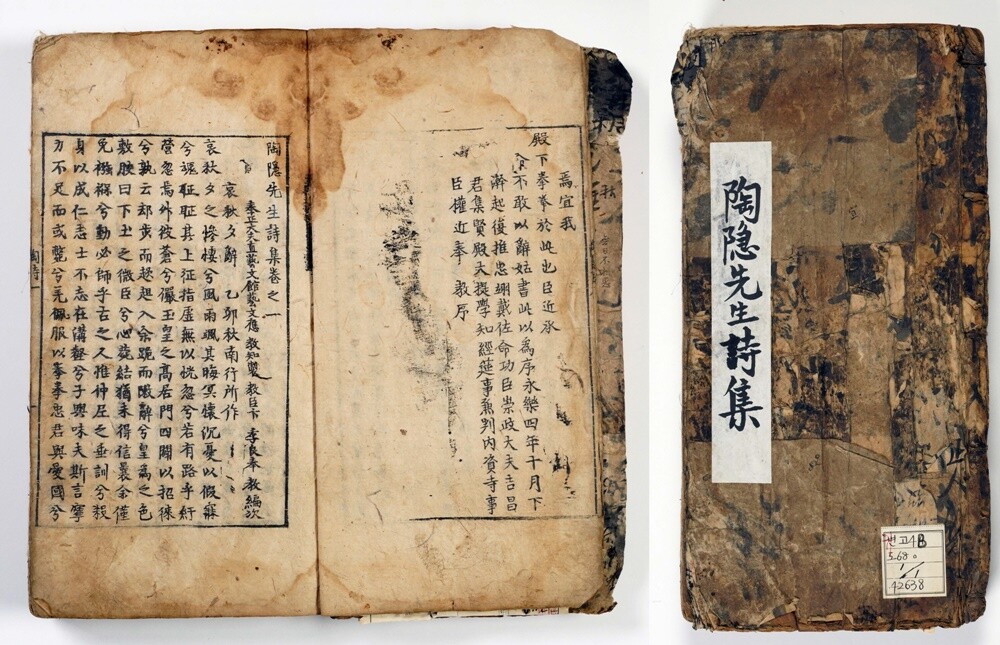 焉宣我
殿下拳拳於此也臣近承
命不敢以辭姑書此以為序永樂四年十月下
澣起復推忠翊戴佐命功臣崇政大夫吉昌
君集賢殿大提學知經筵事兼判內資寺事
臣權近奉 教序
陶隱先生詩集卷之一
奉正大夫直藝文館藝文應教知製教臣卞季良奉教編次
哀秋夕辭 乙卯秋南行所作
哀秋夕之慘悽兮風雨颯其晦冥懷沉憂以假寐
兮魂征征其上征指虛無以恍忽兮若有路乎紆
營忽焉外彼蒼兮儼玉皇之高居門四闢以招徠
兮孰云却步而趑趄入余跪而陳辭兮皇為之色
敷腴曰下土之微臣兮心菀結猶未得信曩余僅
免襁褓兮動必師乎古之人惟仲尼之垂訓兮殺
身以成仁志士不忘在溝壑兮子輿味夫斯言寧
力不足而或斃兮羌佩服以拳拳忠君與愛國兮
陶詩一
陶隐先生詩集
고4B
5.68
1/1
42638